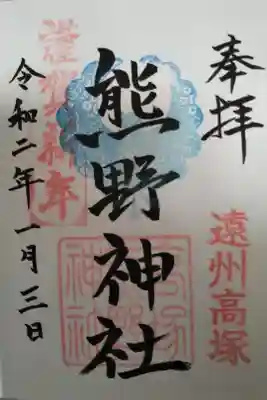 奉拝
遠州高塚
熊野神社
謹賀新年
令和二年一月三日